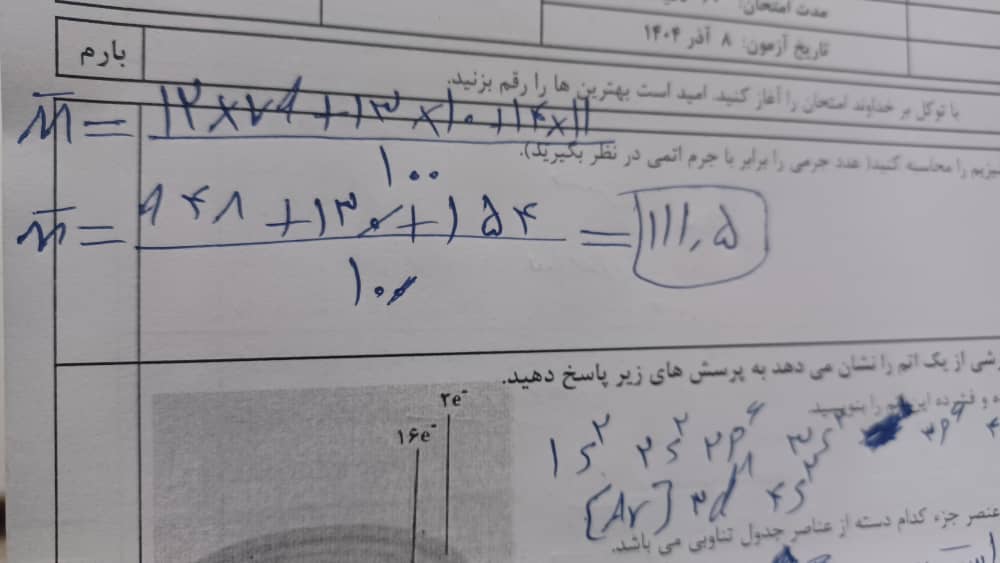 مدت امتحان:
تاریخ آزمون: ۸ آذر ۱۴۰۴
بارم
با توکل بر خداوند امتحان را آغاز کنید. امید است بهترین ها را رقم بزنید.
m̅ = ۱۲×۷۹+۱۳×۱۰+۱۴×۱۱
۱۰۰
را محاسبه کنید( عدد جرمی را برابر با جرم اتمی در نظر بگیرید).
m̅ = ۹۴۸+۱۳۰+۱۵۴ = ۱۱۱٫۵
۱۰۰
از یک اتم را نشان می دهد به پرسش های زیر پاسخ دهید.
۲e⁻
۱۶e⁻
را بنویسید
۱s² ۲s² ۲p⁶ ۳s² ۳p⁶
[Ar] ۳d ۴s²
عنصر جزء کدام دسته از عناصر جدول تناوبی می باشد.